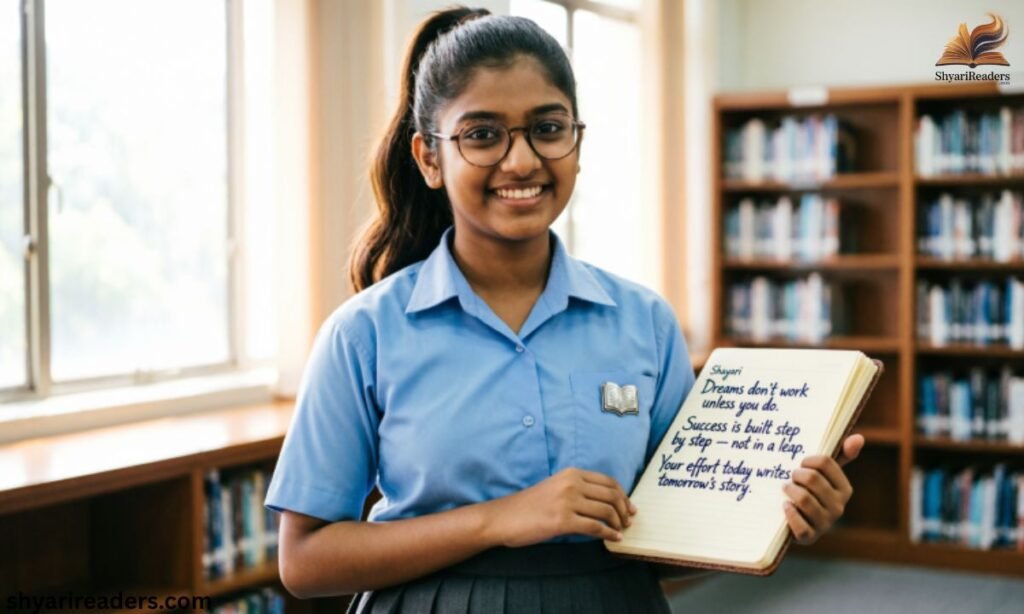 ShyariReaders
Shayari
Dreams don't work
unless you do.
Success is built step
by step — not in a leap.
Your effort today writes
tomorrow's story.
shyarireaders.com